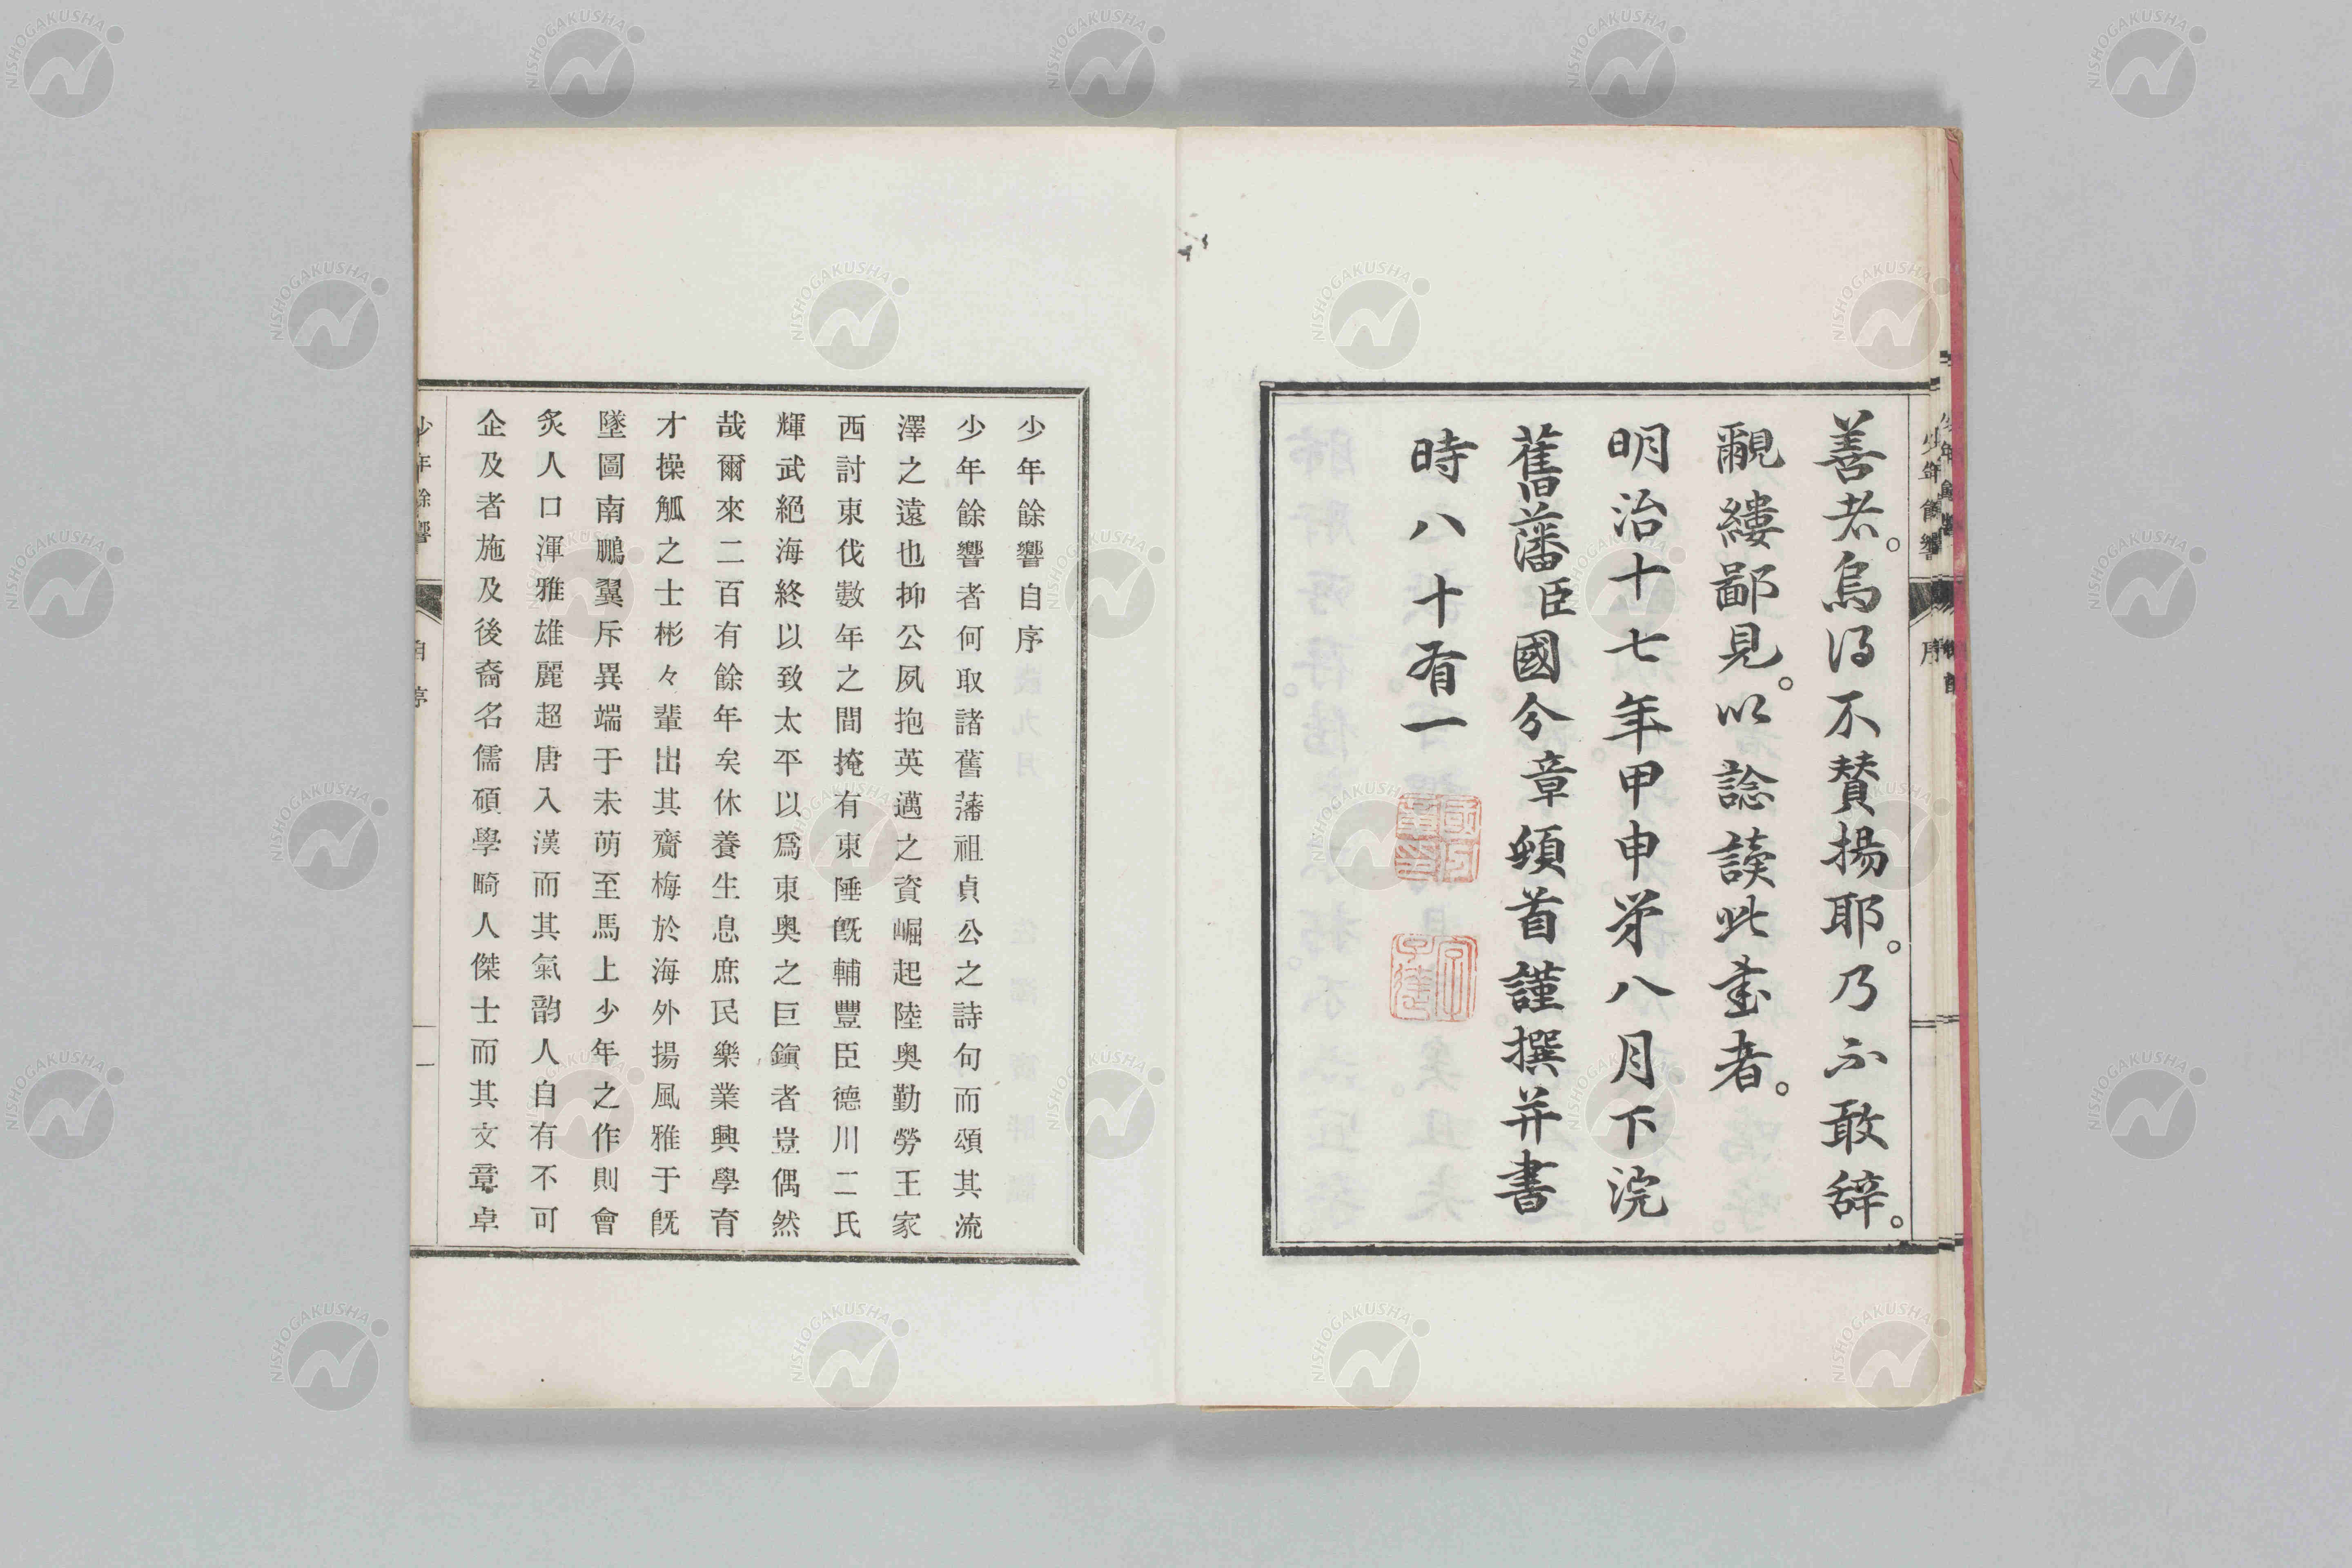 善者。烏得不賛揚耶。乃不敢辞。
覼縷鄙見。以諗読此書者。
明治十七年甲申第八月下浣
舊藩臣國分章頓首謹撰并書
時八十有一
少年餘響
序
少年餘響自序
少年餘響者何取諸舊藩祖貞公之詩句而頌其流
澤之遠也抑公夙抱英邁之資崛起陸奧勤勞王家
西討東伐數年之間掩有東陲既輔豐臣德川二氏
輝武絕海終以致太平以爲東奧之巨鎭者豈偶然
哉爾來二百有餘年矣休養生息庶民樂業興學育
才操觚之士彬々輩出其齎梅於海外揚風雅于既
墜圖南鵬翼斥異端于未萌至馬上少年之作則會
炙人口渾雅雄麗超唐入漢而其氣韵人自有不可
企及者施及後裔名儒碩學畸人傑士而其文章卓
少年餘響
自序
一
NISHOGAKUSHA